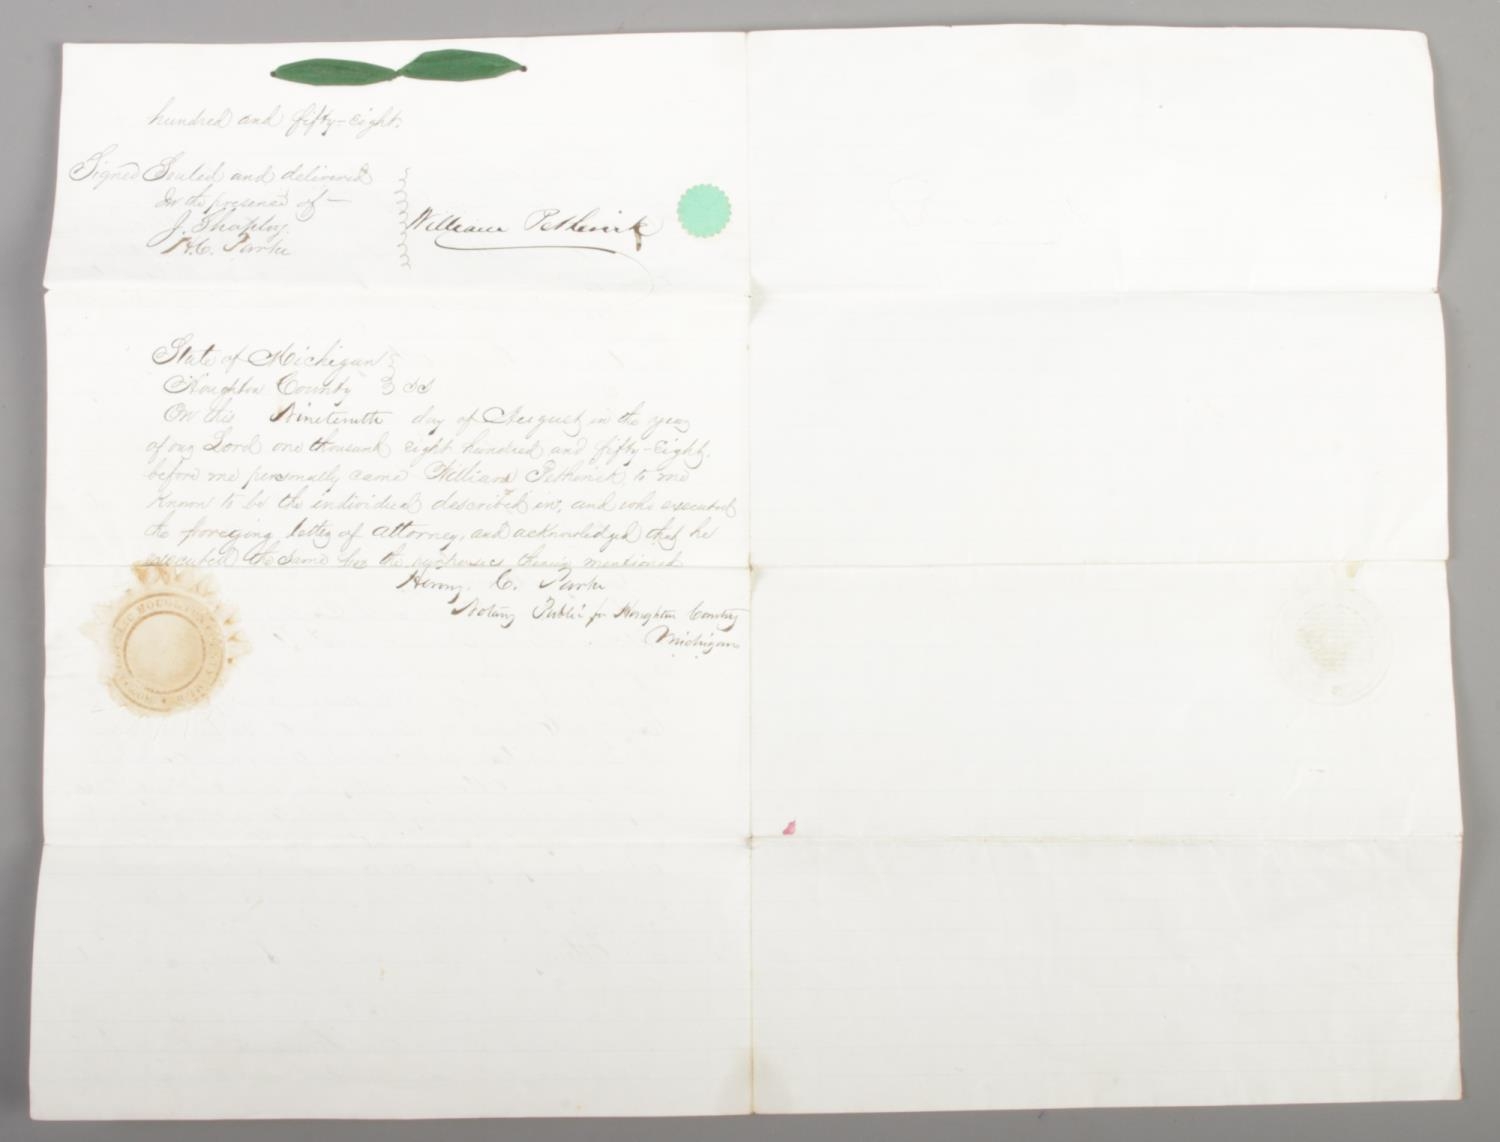 hundred and fifty-eight.
Signed Sealed and delivered
In the presence of —
J. Shapley.
H. C. Parke
William Pethewick
State of Michigan
Houghton County } SS
On this Nineteenth day of August in the year
of our Lord one thousand eight hundred and fifty-eight,
before me personally came William Petherick, to me
known to be the individual described in, and who executed
the foregoing letter of attorney, and acknowledged that he
executed the same for the purposes therein mentioned
Henry. C. Parke
Notary Public for Houghton County
Michigan
HOUGHTON COUNTY MICH